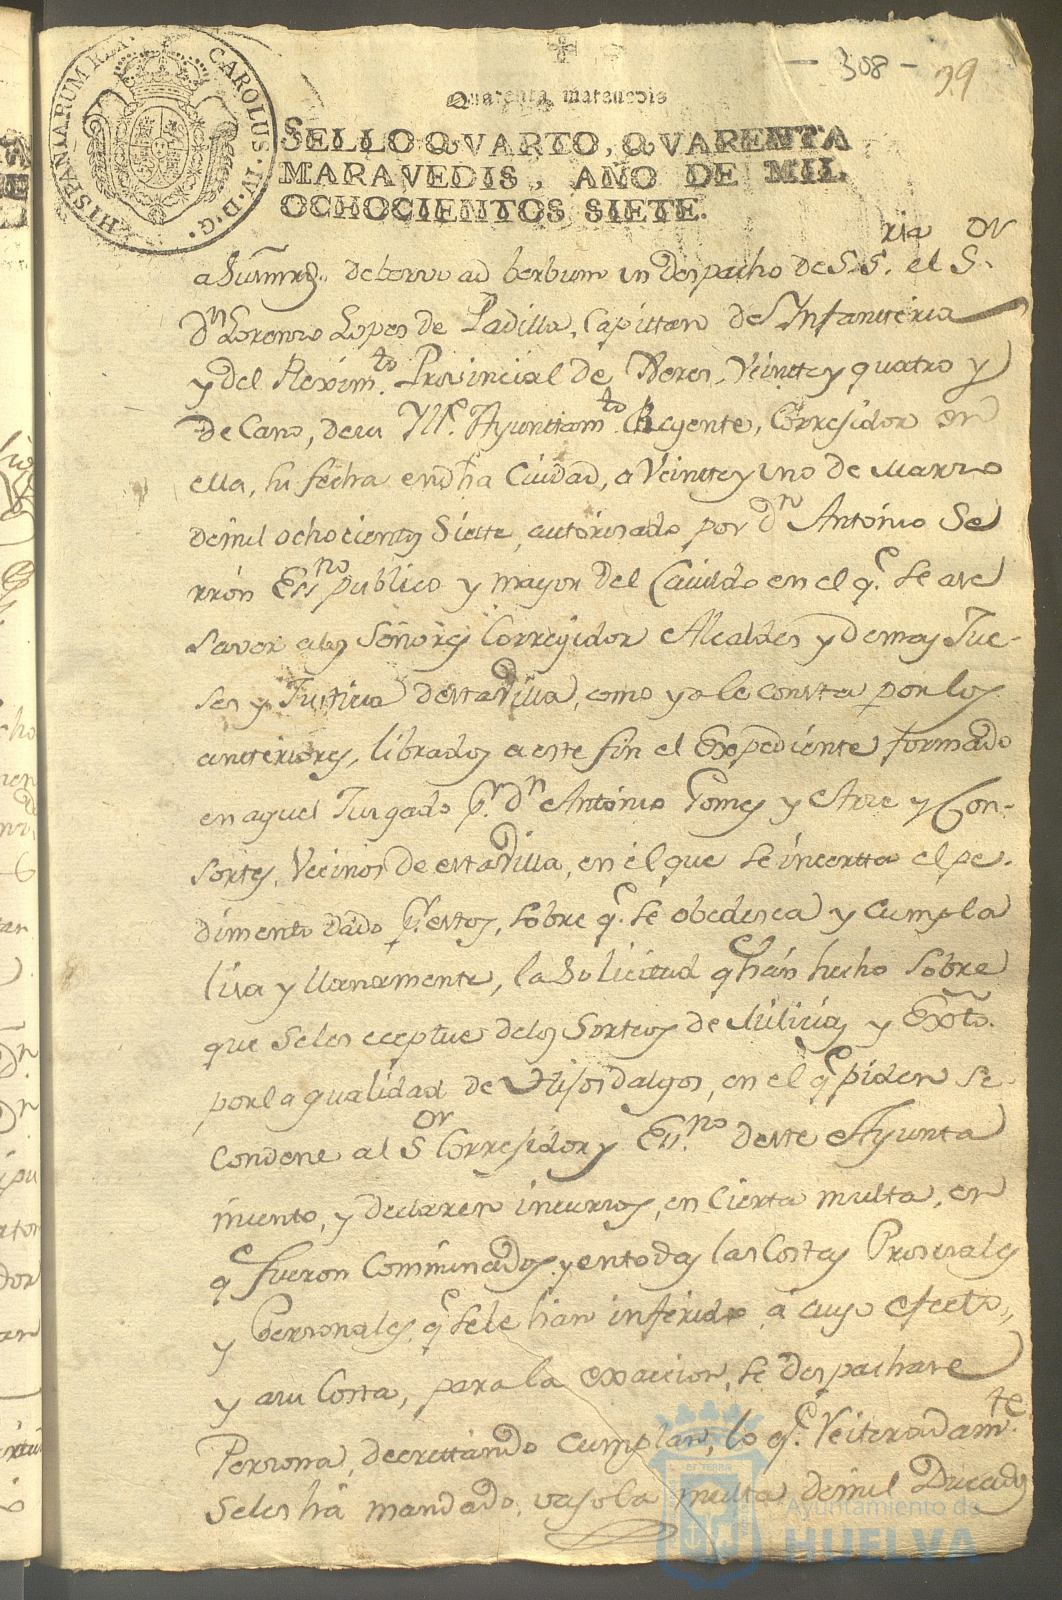 - 308 - 39
Quarenta maravedis
SELLO QVARTO, QVARENTA
MARAVEDIS, AÑO DE MIL
OCHOCIENTOS SIETE.
CAROLUS·IV·D·G·HISPANIARUM REX·
debervo ad berbum un despacho de S.Sria. el Sor
Dn Lorenzo Lopes de Padilla, Capittan de Infantteria
y del Reximto. Provincial de Xeres, Veintey quatro y
de Cano, de su Ylle. Ayunttamto Regente, Correjidor en
ella, su fecha en dha Ciudad, a Veintey uno de Marzo
demil ochocientos Siette, autorisado por dn Antonio Se
rrón Essno publico y mayor del Cavildo en el qe. se ase
saver alos Señores Correjidor Alcaldes y Demas Jue-
ses y Justicia de esta Villa, como ya le consta por los
antteriores, librados a este fin el Expediente formado
en aquel Jusgado pr. dn Antonio Gomes y Arze y Con-
sortes, Vecinos de esta Villa, en el que se incertta el pe-
dimento dado pr. estos, sobre qe. se obedesca y cumpla
lisa y llanamente, la Solicitud qe han hecho sobre
que Seles eceptue delos Sorteos de Milicias y Exto.
porla qualidad de Hijosdalgos, en el qe piden se
Condene al Sor Corresidor y Essno deste Ayunta
miento, y declaren incursos, en Cierta multa, en
qe fueron Comminados, y en todas las Costas Prosesales
y Personales, qe sele han inferido, a cuyo efecto,
y a su Costa, para la exaccion, se despachare
Persona, decrettando cumplan, lo qe. Reiteradamte.
Seles há mandado, vajo la multa demil Ducados
Ayuntamiento de
HUELVA